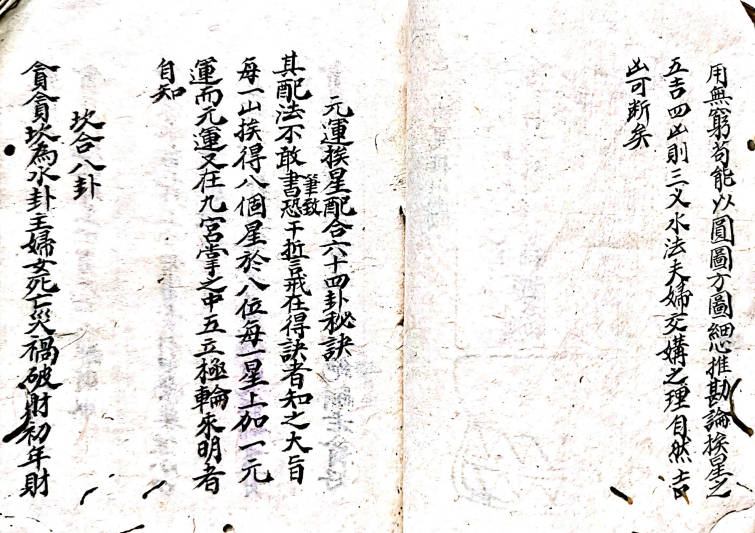 用無窮苟能以圓圖方圖細心推勘論挨星之
五吉四凶則三义水法夫婦交媾之理自然吉
凶可断矣
元運挨星配合六十四卦秘訣
其配法不敢書筆致恐干誓言戒在得訣者知之大旨
每一山挨得八個星於八位每一星上加一元
運而元運又在九宮掌之中五立極輪來明者
自知
坎合八卦
貪貪坎為水卦主婦女死亡災禍破財初年財